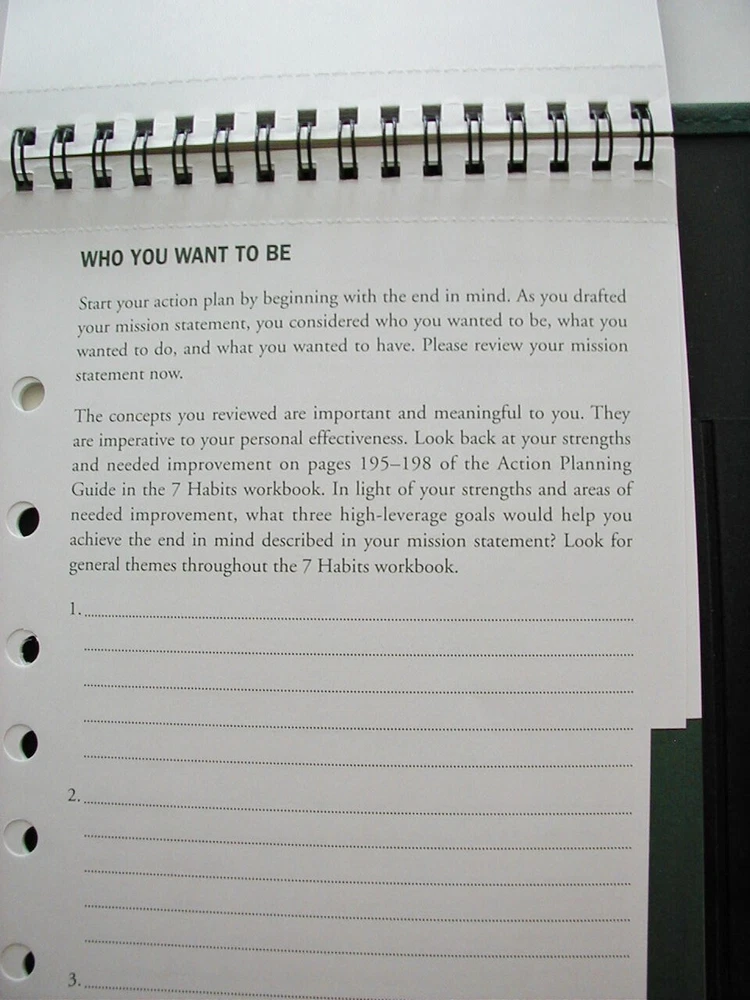 WHO YOU WANT TO BE
Start your action plan by beginning with the end in mind. As you drafted
your mission statement, you considered who you wanted to be, what you
wanted to do, and what you wanted to have. Please review your mission
statement now.
The concepts you reviewed are important and meaningful to you. They
are imperative to your personal effectiveness. Look back at your strengths
and needed improvement on pages 195–198 of the Action Planning
Guide in the 7 Habits workbook. In light of your strengths and areas of
needed improvement, what three high-leverage goals would help you
achieve the end in mind described in your mission statement? Look for
general themes throughout the 7 Habits workbook.
1.
2.
3.